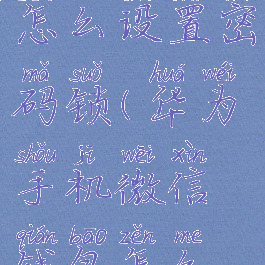 怎么设置密
mǎ suǒ huá wéi
码锁(华为
shǒu jī wēi xìn
手机微信
qián bāo zěn me
钱包怎么